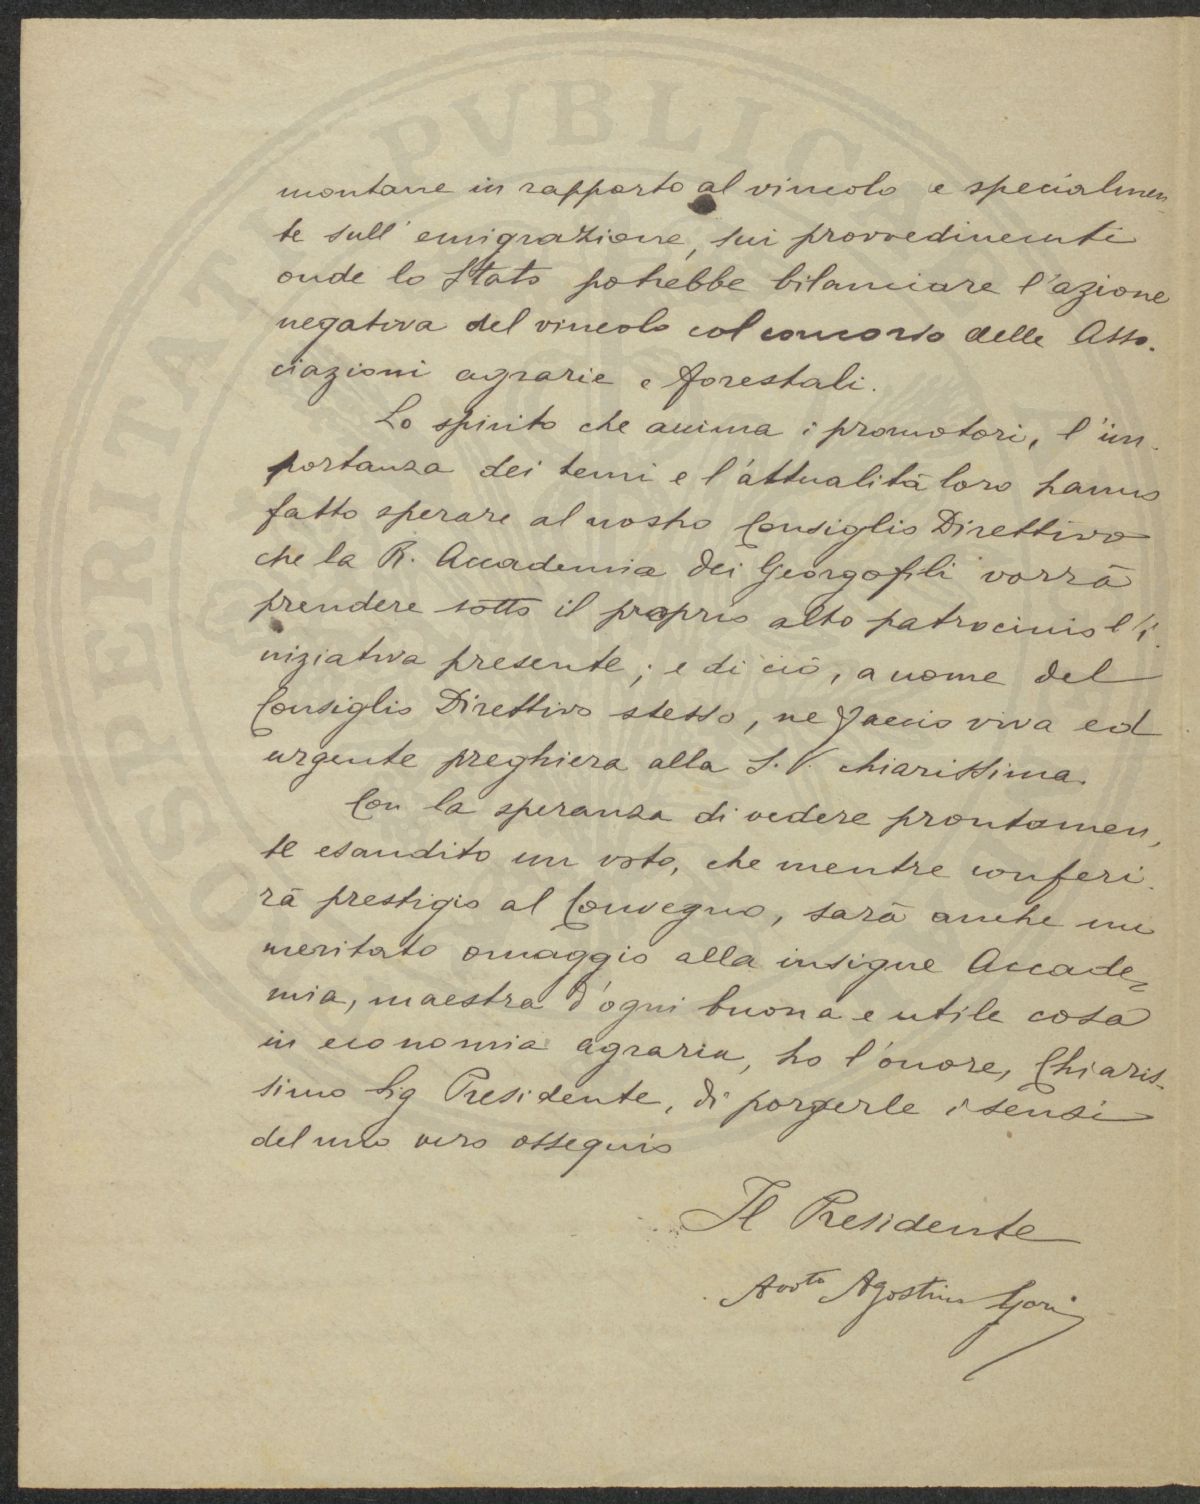 montane in rapporto al vincolo e specialmen-
te sull'emigrazione, sui provvedimenti
onde lo Stato potrebbe bilanciare l'azione
negativa del vincolo col concorso delle Asso-
ciazioni agrarie e forestali.
Lo spirito che anima i promotori, l'im-
portanza dei temi e l'attualità loro hanno
fatto sperare al nostro Consiglio Direttivo
che la R. Accademia dei Georgofili vorrà
prendere sotto il proprio alto patrocinio l'i-
niziativa presente; e di ciò, a nome del
Consiglio Direttivo stesso, ne faccio viva ed
urgente preghiera alla S. V. chiarissima.
Con la speranza di vedere prontamen-
te esaudito un voto, che mentre conferi-
rà prestigio al Convegno, sarà anche un
meritato omaggio alla insigne Accade-
mia, maestra d'ogni buona e utile cosa
in economia agraria, ho l'onore, Chiaris-
simo Sig Presidente, di porgerle i sensi
del mio vero ossequio
Il Presidente
Avvto Agostino Gori